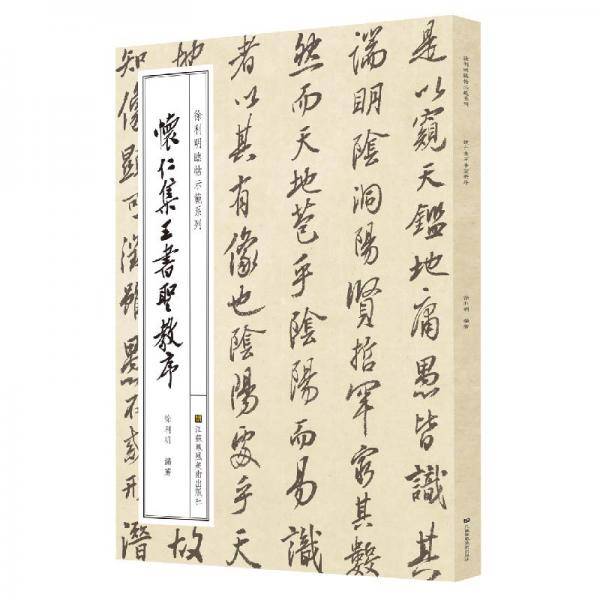 徐利明臨帖示範系列
懷仁集王書聖教序
徐利明 編著
江蘇鳳凰美術出版社
是以窺天鑑地庸愚皆識其
端明陰洞陽賢哲罕窮其數
然而天地苞乎陰陽而易識
者以其有像也陰陽處乎天
地
故
知像顯可徵雖愚不惑形潛
徐利明臨帖示範系列
懷仁集王書聖教序
徐利明 編著
江蘇鳳凰美術出版社